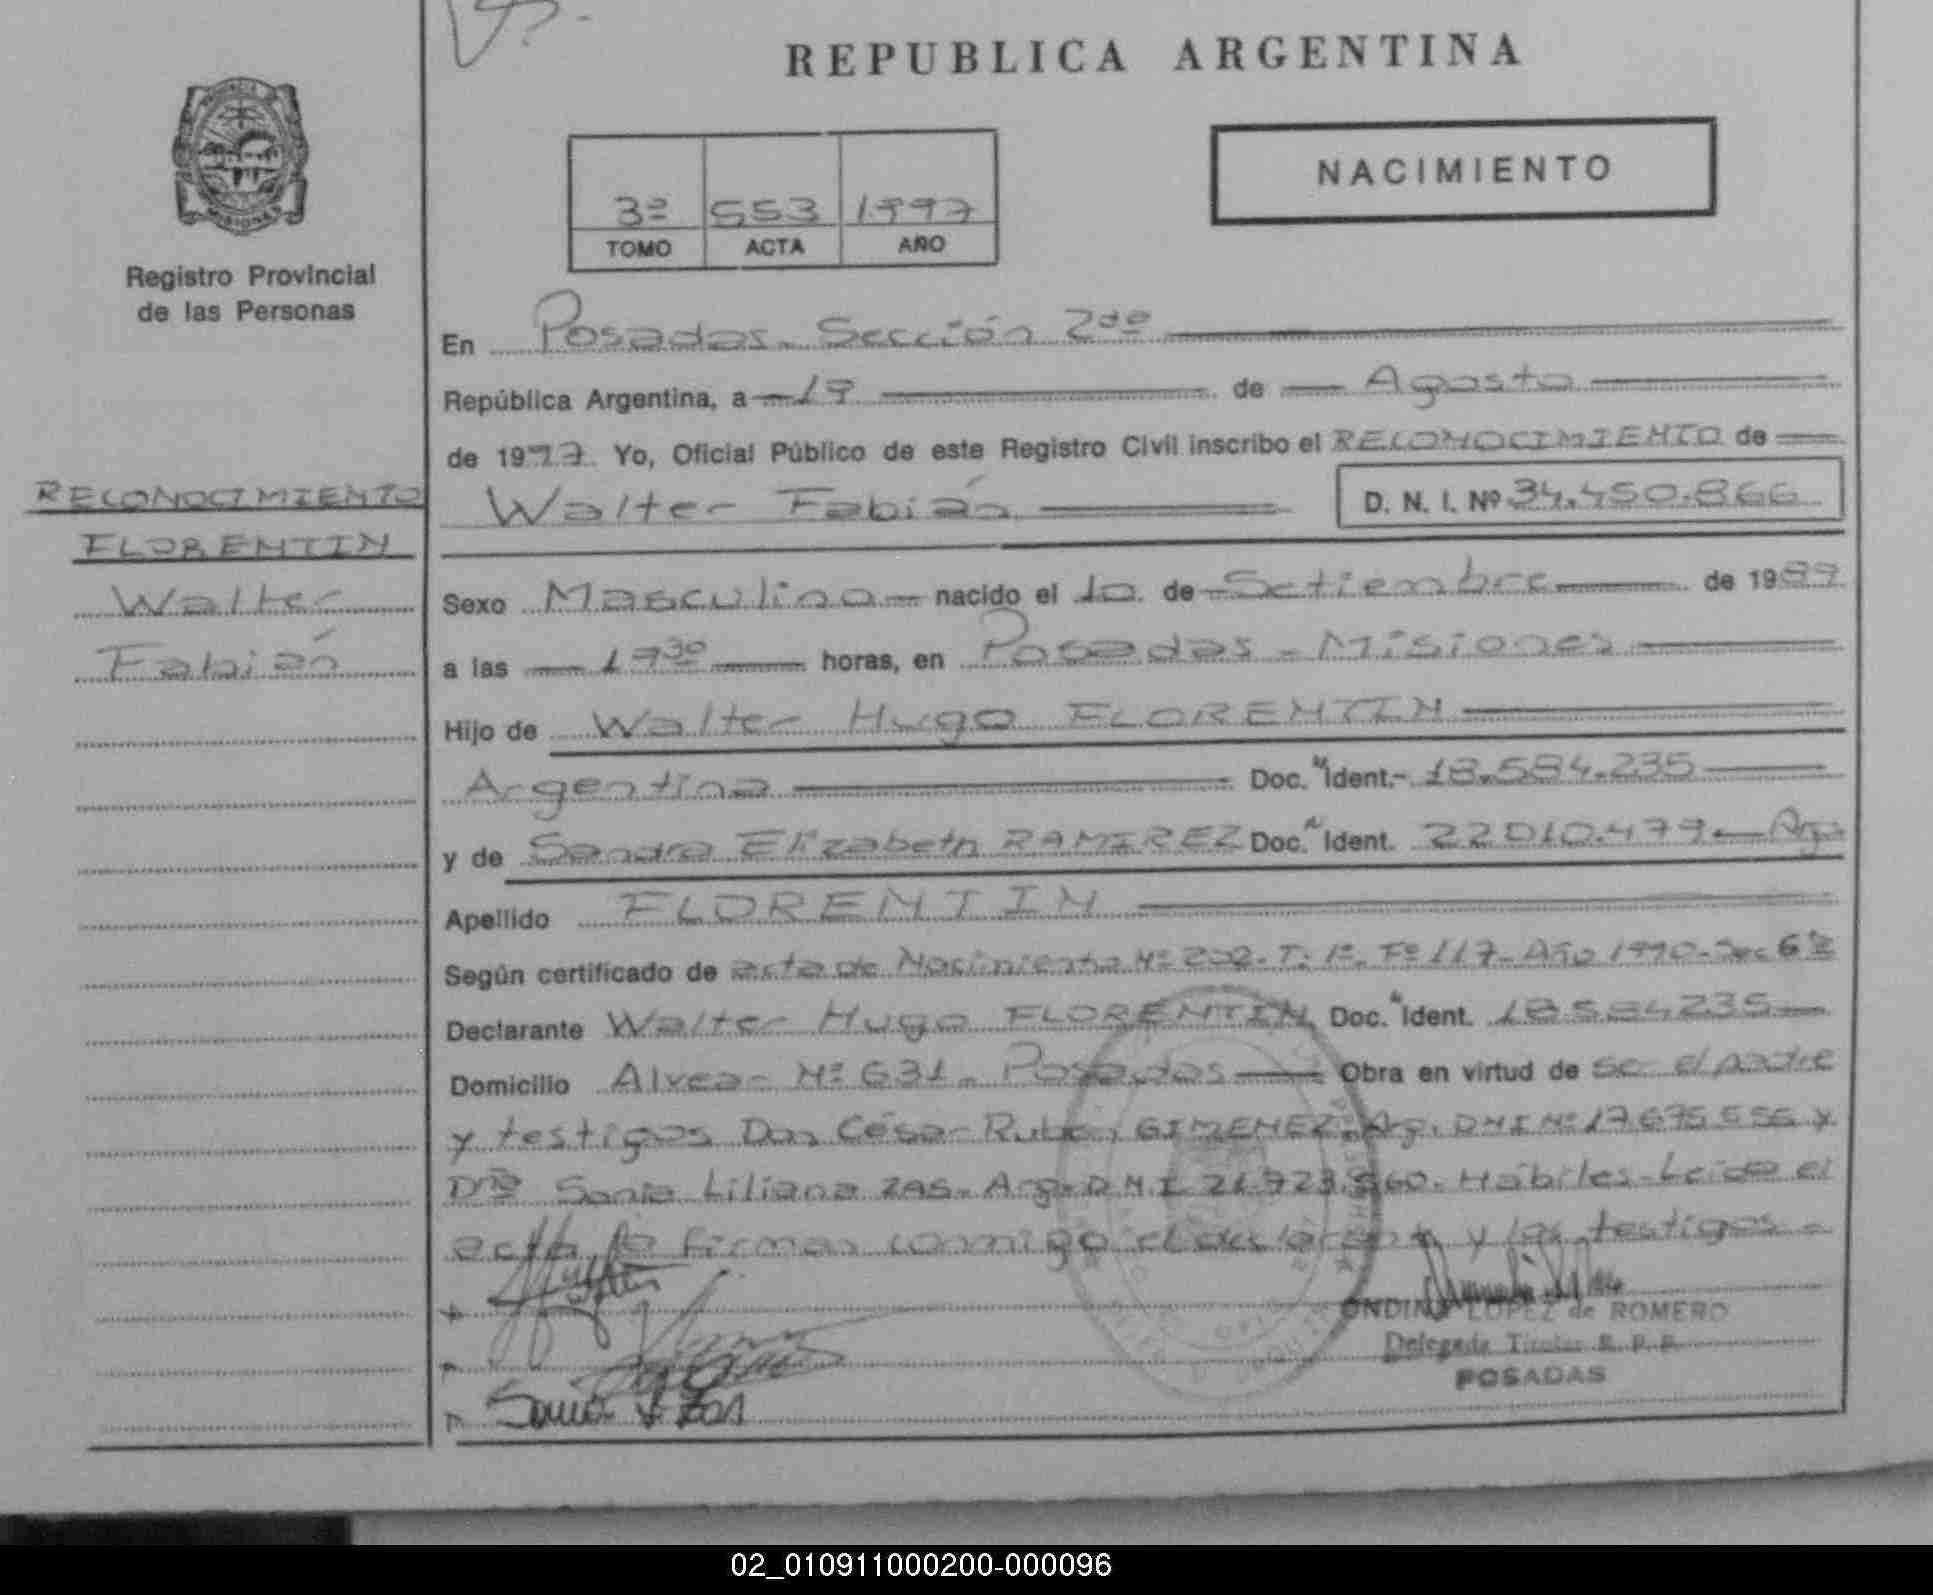 REPUBLICA ARGENTINA
NACIMIENTO
3º 553 1997
TOMO ACTA AÑO
Registro Provincial
de las Personas
En Posadas - Sección 2da
República Argentina, a 19 de Agosto
de 1997. Yo, Oficial Público de este Registro Civil inscribo el RECONOCIMIENTO de
Walter Fabián D. N. I. Nº 34.450.866
RECONOCIMIENTO
FLORENTIN
Walter
Fabián
Sexo Masculino nacido el 10 de Setiembre de 1989
a las 19 30 horas, en Posadas - Misiones
Hijo de Walter Hugo FLORENTIN
Argentina Doc. Ident. 18.584.235
y de Sandra Elizabeth RAMIREZ Doc. Ident. 22.010.479 - Arg.
Apellido FLORENTIN
Según certificado de acta de Nacimiento Nº 202 - T: 1º. Fº 117 - Año 1990 - Sec 6ta
Declarante Walter Hugo FLORENTIN Doc. Ident. 18.584.235
Domicilio Alvear Nº 631 - Posadas Obra en virtud de ser el padre
y testigos Don César Rubén GIMENEZ - Arg. DNI Nº 17.675.556 y
Dña Sonia Liliana ZAS - Arg. D.N.I. 21.723.560. Hábiles - Leida el
acta, la firman conmigo el declarante y los testigos -
ONDINA LOPEZ de ROMERO
Delegada Titular R. P. P.
POSADAS
Sonia L Zas
02_010911000200-000096